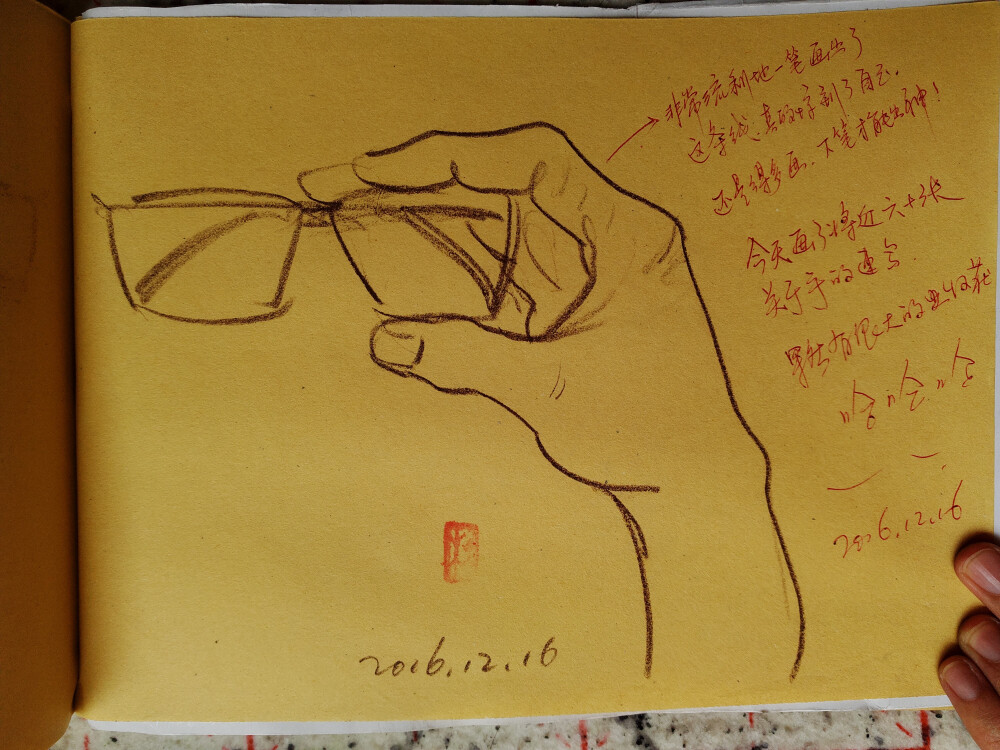 非常流利地一笔画出了
这条线,真的惊到了自己.
还是得多画.下笔才能出神!
今天画了将近六十张
关于手的速写.
果然有很大的收获
哈哈哈
2016.12.16
2016.12.16